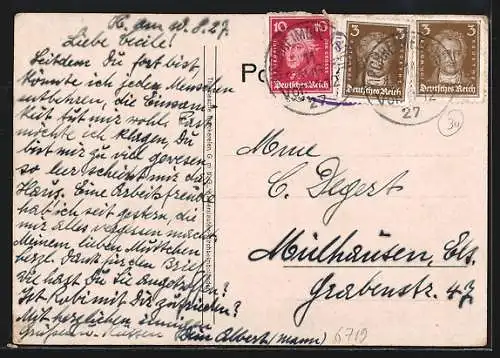 H. am 10.8.27.
Liebe Cecile!
Seitdem Du fort bist,
könnte ich jeden Menschen
entbehren, die Einsam-
keit tut mir wohl. Fast
möchte ich klagen, Du
bist mir zu viel gewesen
so leer scheint mir das
Haus. Eine Arbeitsfreude
hab ich seit gestern, die
mir alles vergessen macht.
Meinem lieben Muttchen
herzl. Dank für den Brief
wie hast Du Sie angetroffen?
Ist Robi mit Dir zufrieden?
Mit herzlichen innigen
Grüßen u. Küssen Dein Albert (mann)
10 10
Deutsches Reich
3 3
Deutsches Reich
3 3
Deutsches Reich
27
27
Po
Mme
C. Degert
Mülhausen, Els.
Grabenstr. 47
30
6719